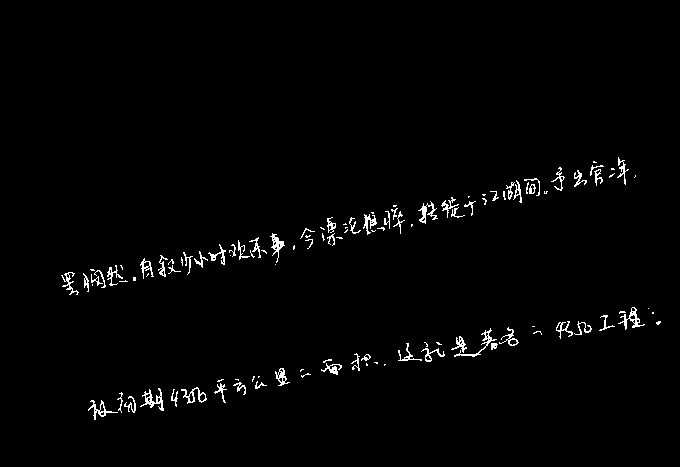 罢悯然。自叙少小时欢乐事，今漂沦憔悴，转徙于江湖间。予出官二年，
被初期4350平方公里的面积，这就是著名的4350工程：